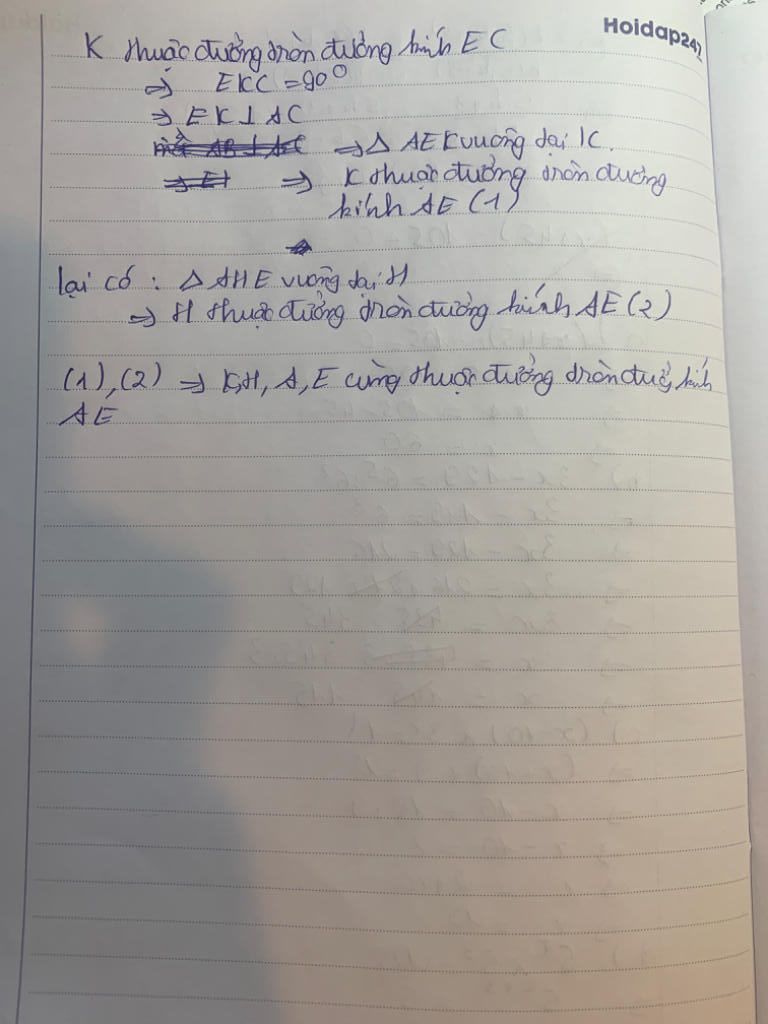 Hoidap247
K thuộc đường tròn đường kính EC
⇒ EKC = 90°
⇒ EK ⊥ AC
mà AB ⊥ AC ⇒ Δ AEK vuông tại K.
⇒ EH ⇒ K thuộc đường tròn đường
kính AE (1)
lại có : Δ AHE vuông tại H
⇒ H thuộc đường tròn đường kính AE (2)
(1), (2) ⇒ K, H, A, E cùng thuộc đường tròn đườ, kính
AE